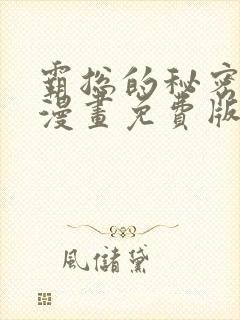 霸总的秘密
漫畫免費版
風儲黛